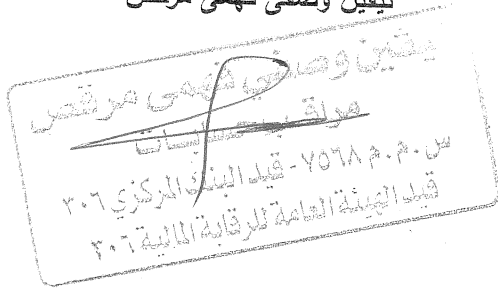 وصفي فهمي مرقص
يقين وصفي فهمي مرقص
مراقب حسابات
س.م.م ٧٥٦٨ - قيد البنك المركزي ٣٠٦
قيد الهيئة العامة للرقابة المالية ٣٠٦